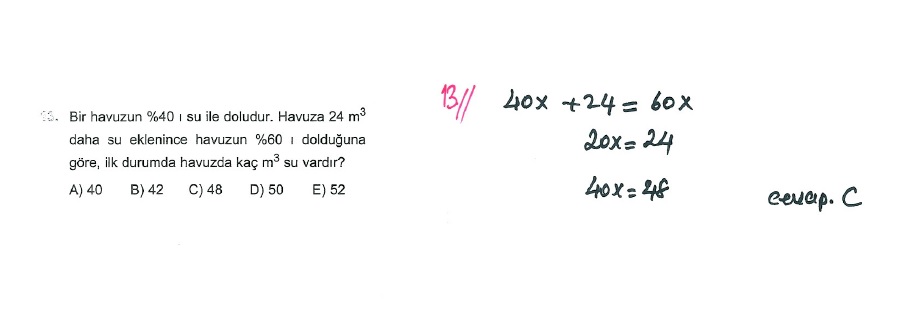 13. Bir havuzun %40 ı su ile doludur. Havuza 24 m³
daha su eklenince havuzun %60 ı dolduğuna
göre, ilk durumda havuzda kaç m³ su vardır?
A) 40 B) 42 C) 48 D) 50 E) 52
13// 40x + 24 = 60x
20x = 24
40x = 48
cevap. C